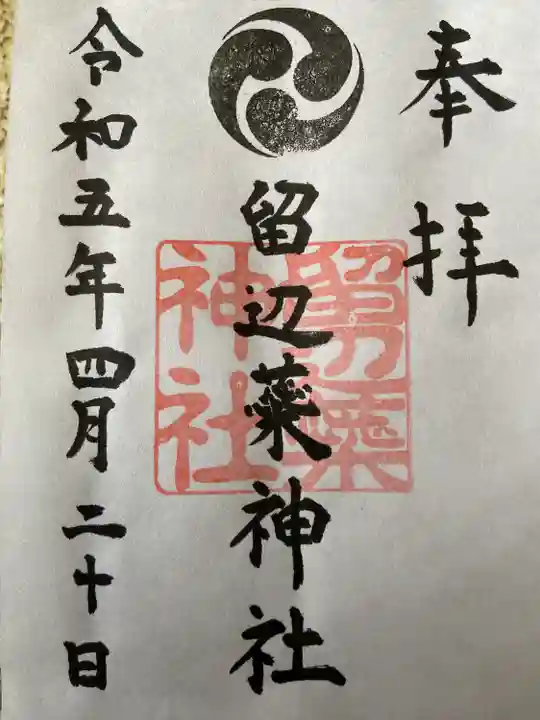 奉拝
留辺蘂神社
留辺蘂神社
令和五年四月二十日